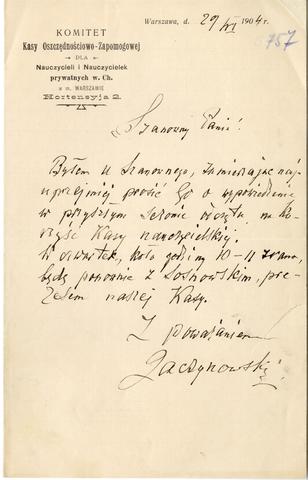 KOMITET
Kasy Oszczędnościowo-Zapomogowej
DLA
Nauczycieli i Nauczycielek
prywatnych w. Ch.
z m. WARSZAWIE
Hortensyja 2.
Warszawa, d. 29/XI 1904 r.
6757
Szanowny Panie!
Byłem u Szanownego, zamierzając naj-
uprzejmiej prosić Go o wypowiedzenie
w przyszłym sezonie odczytu na ko-
rzyść Kasy nauczycielskiej.
W czwartek, koło godziny 10-11 zrana,
będę ponownie z Sosnowskim, pre-
zesem naszej Kasy.
Z poważaniem
Gaczynowski